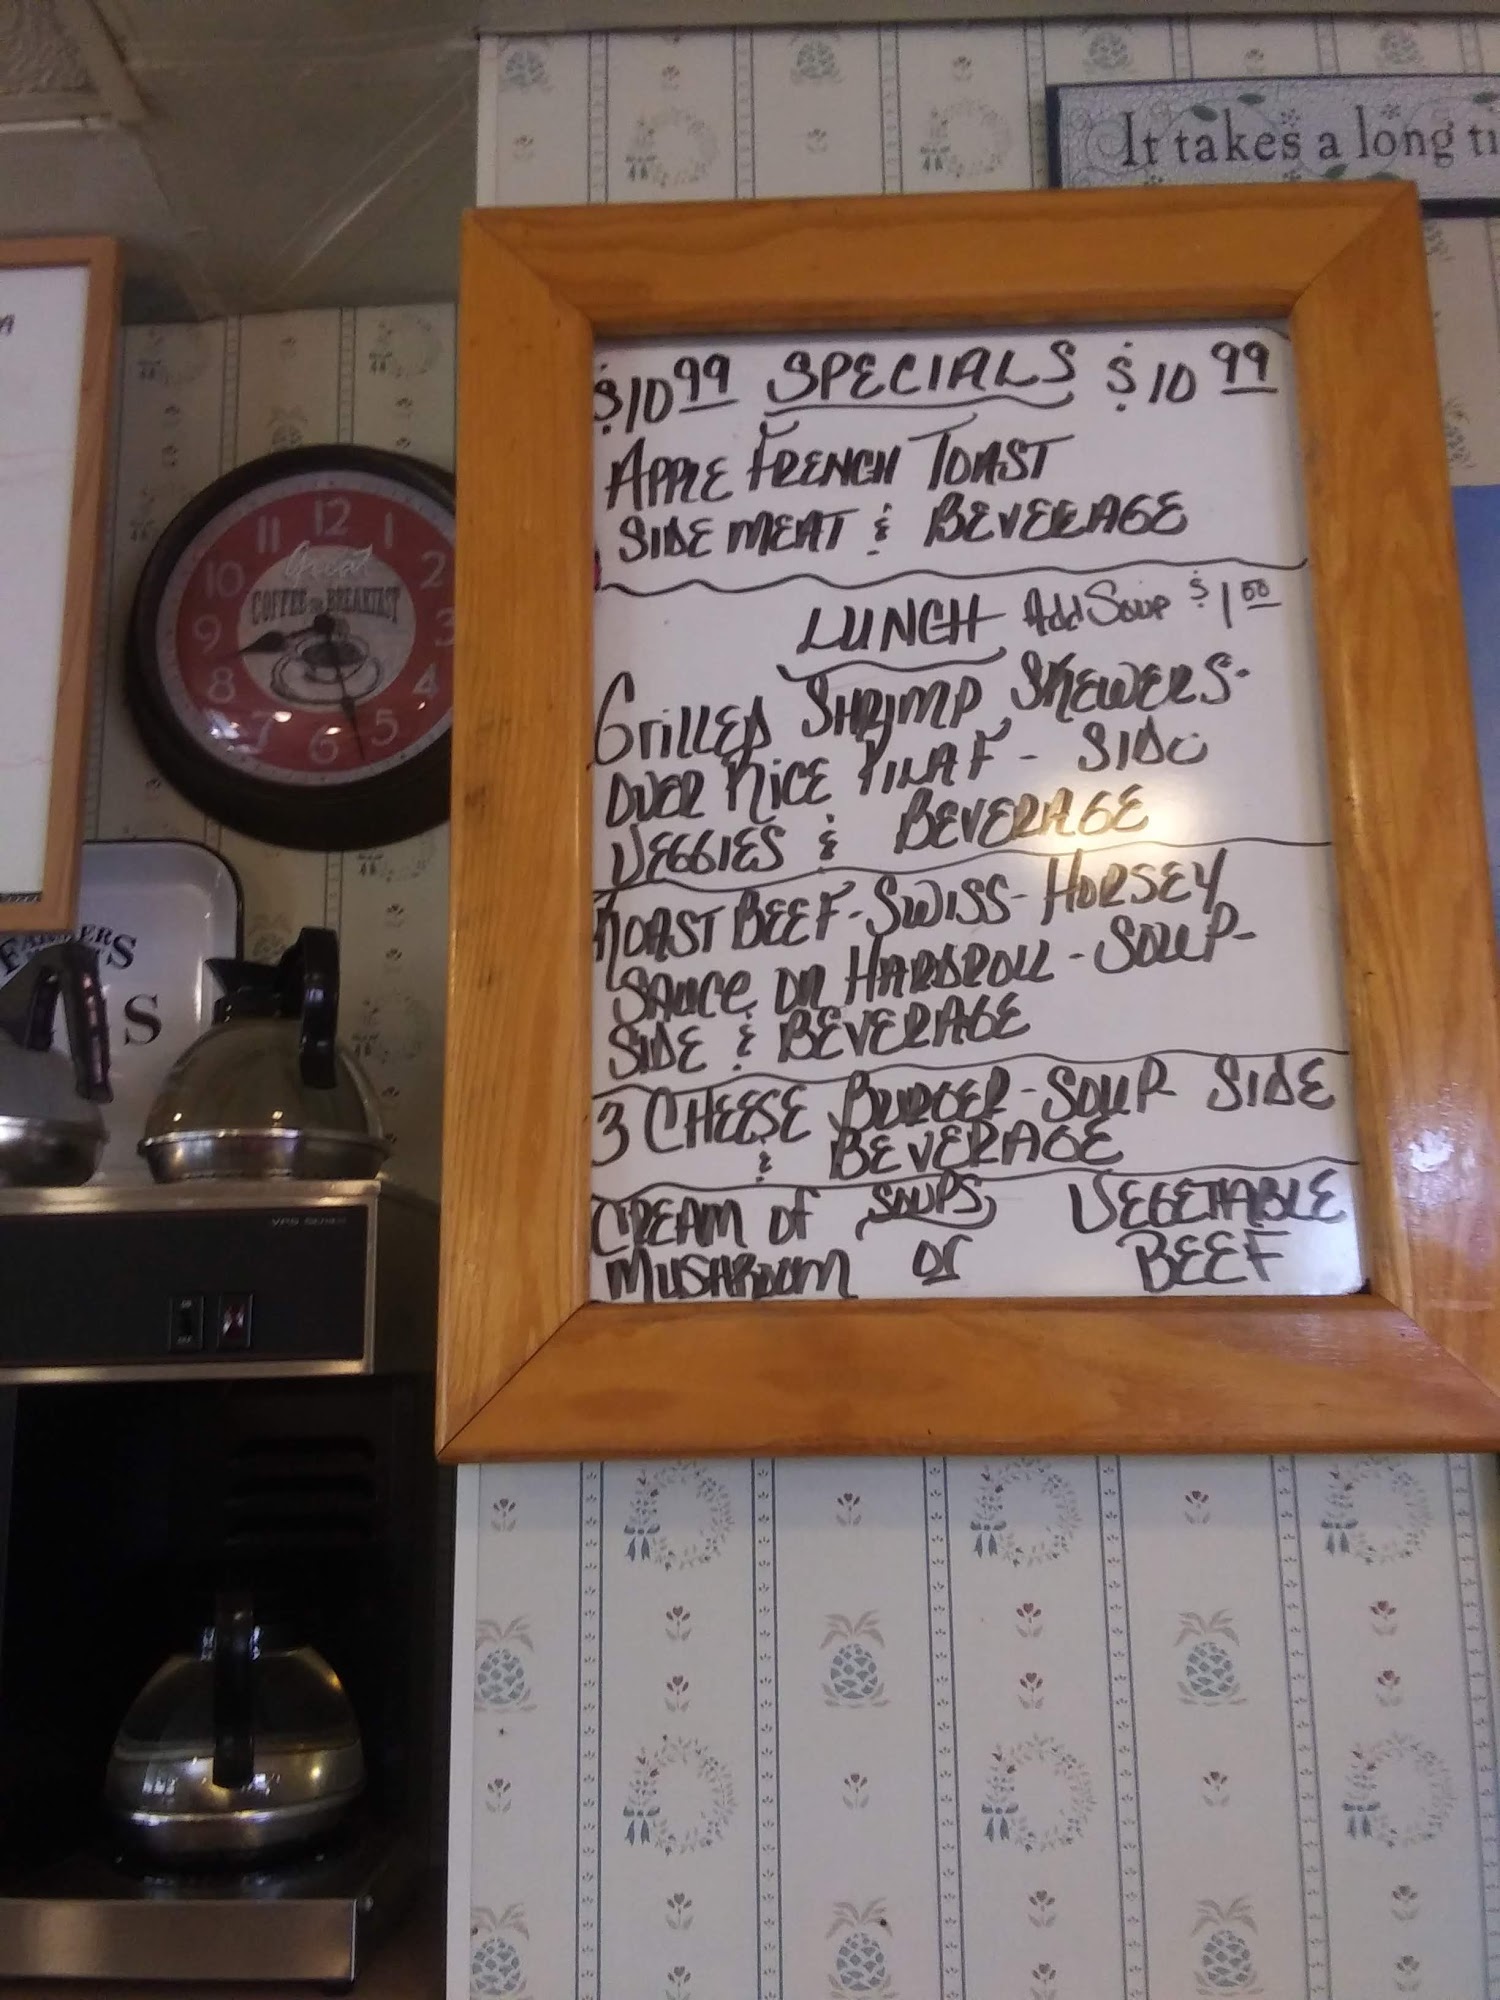 It takes a long ti
$10.99 SPECIALS $10.99
APPLE FRENCH TOAST
SIDE MEAT & BEVERAGE
LUNCH Add Soup $1.50
GRILLED SHRIMP SKEWERS-
OVER RICE PILAF - SIDE
VEGGIES & BEVERAGE
ROAST BEEF-SWISS-HORSEY
SAUCE ON HARDROLL-SOUP-
SIDE & BEVERAGE
3 CHEESE BURGER-SOUP SIDE
& BEVERAGE
CREAM OF SOUPS VEGETABLE
MUSHROOM or BEEF
12
11 1
10 2
Great
COFFEE BREAKFAST
9 3
8 4
7 6 5
S